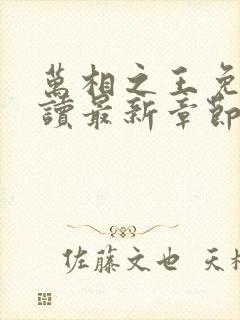 萬相之王免
讀最新章節
佐藤文也 天